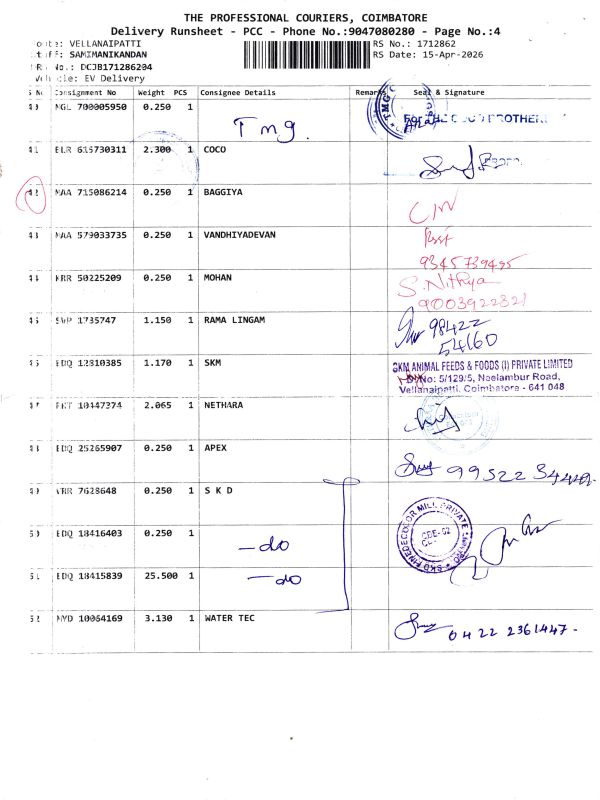 THE PROFESSIONAL COURIERS, COIMBATORE
Delivery Runsheet - PCC - Phone No.:9047080280 - Page No.:4
: VELLANAIPATTI RS No.: 1712862
: SAMIMANIKANDAN RS Date: 15-Apr-2026
No.: DCJB171286204
: EV Delivery
Consignment No Weight PCS Consignee Details Remarks Seal & Signature
NGL 700005950 0.250 1 Tmg. For THE BROTHER
615730311 2.300 1 COCO
MAA 715086214 0.250 1 BAGGIYA
MAA 579033735 0.250 1 VANDHIYADEVAN
9345739495
KRR 50225209 0.250 1 MOHAN S. Nithya
9003922321
1735747 1.150 1 RAMA LINGAM 98422
54160
EDQ 12810385 1.170 1 SKM SKM ANIMAL FEEDS & FOODS (I) PRIVATE LIMITED
No: 5/129/5, Neelambur Road,
Vellanaipatti, Coimbatore - 641 048
10447374 2.065 1 NETHARA
EDQ 25265907 0.250 1 APEX
7628648 0.250 1 S K D
EDQ 18416403 0.250 1 -do
EDQ 18415839 25.500 1 -do
10064169 3.130 1 WATER TEC 0422 2361447-